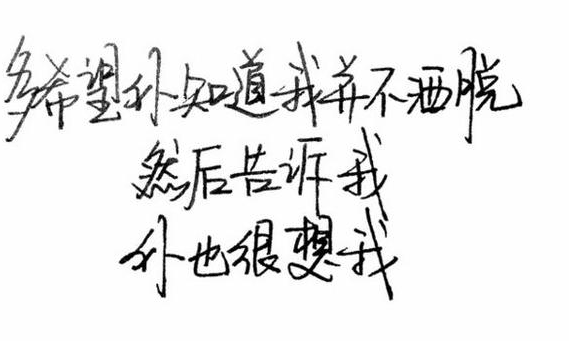 多希望你知道我并不洒脱
然后告诉我
你也很想我